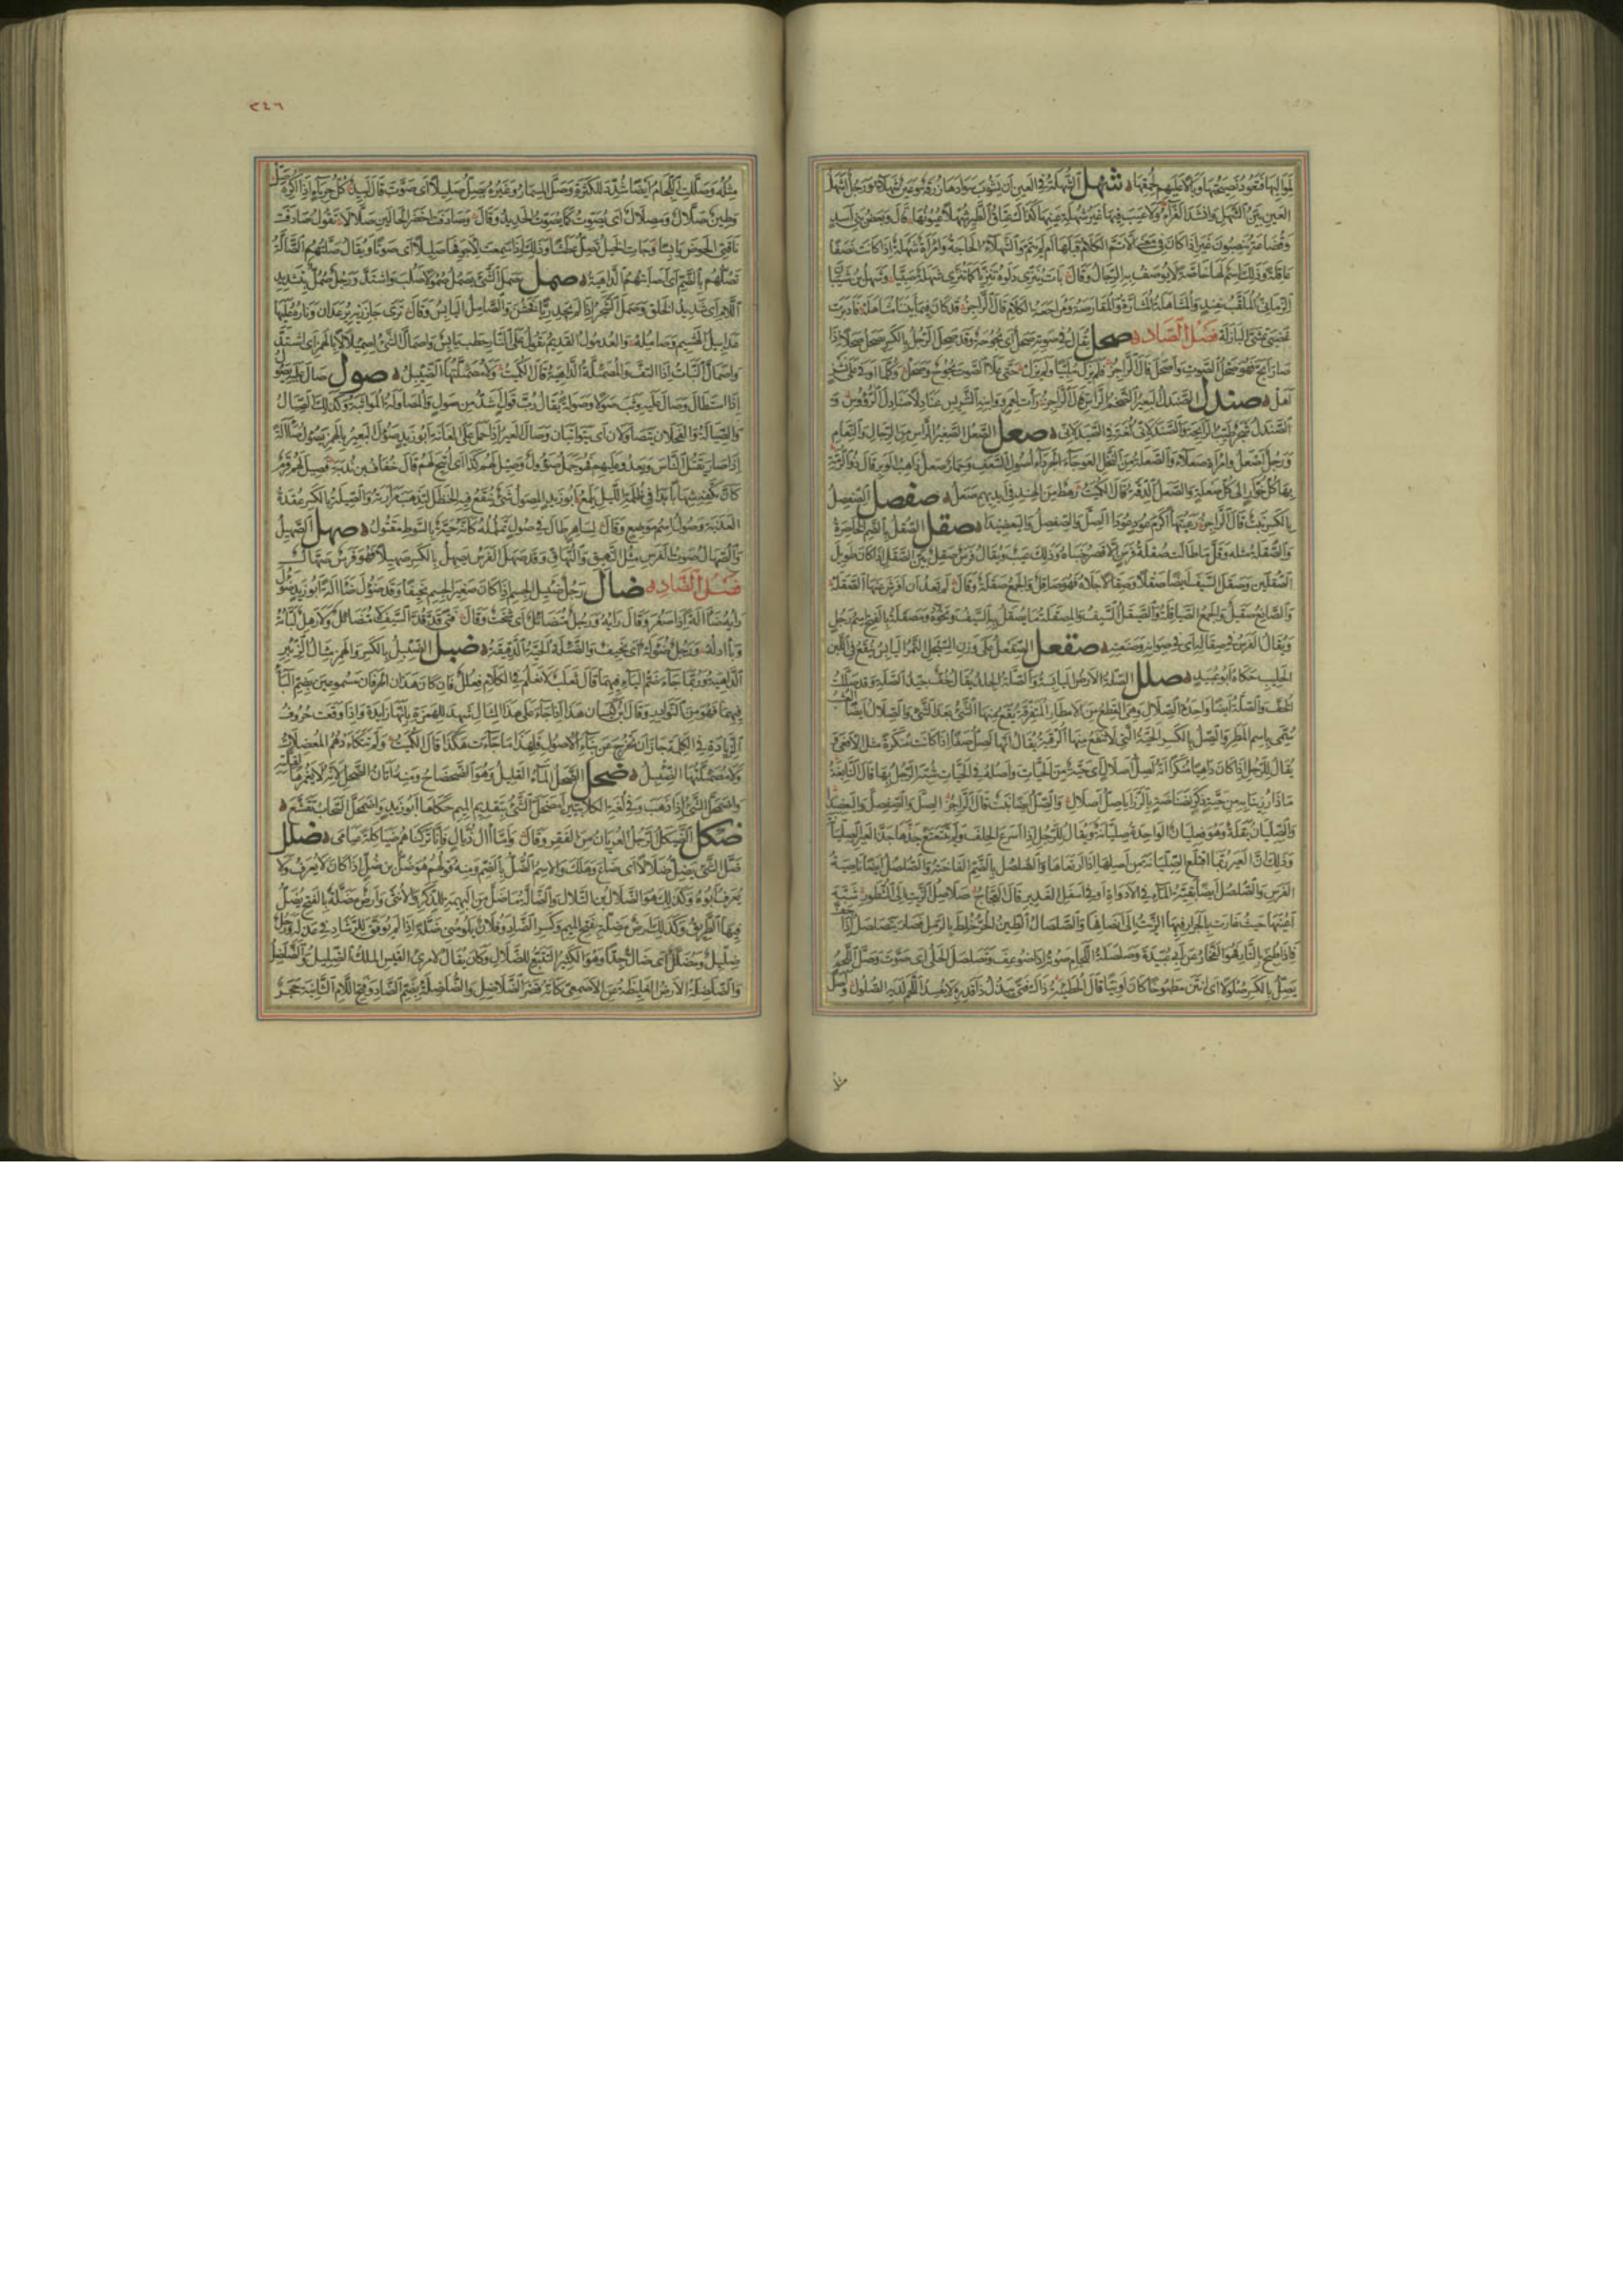 شهل الشهلة في العين أن يشوب سوادها زرقة وعين شهلاء ورجل أشهل
العين بين الشهل وأنشد الفراء ولا عيب فيها غير شهلة عينها كذاك عتاق الطير شهلا عيونها قال وبعض بني أسد
وقضاعة ينصبون غير إذا كان في معنى إلا تم الكلام قبلها أم لم يتم والشهلاء الحاجة وامرأة شهلة إذا كانت نصفا
عاقلة وذلك اسم لها خاصة لا يوصف به الرجال وقال باتت تنزي دلوه تنزيا كما تنزي شهلة صبيا وشهل بن شيبان
الزماني الملقب بفند والمشاهلة المشارة والمقارصة ومراجعة الكلام قال الراجز قد كان فيما بيننا مشاهلة فأدبرت
فصل الصاد صحل يقال في صوته صحل أي بحوحة وقد صحل الرجل بالكسر صحل صحلا إذا
صار أبح فهو صحل الصوت وأصحل قال الراجز فلم يزل ملبيا ولم يزل حتى علا الصوت بحوح وصحل وكلما أوفى على نشز
أهل صندل الصندل البعير الضخم الرأس قال الراجز
الصندل شجر طيب الرائحة والصندلاني لغة في الصيدلاني صعل الصعل الصغير الرأس من الرجال والنعام
ورجل أصعل وامرأة صعلاء والصعلة من النخل العوجاء الجرداء أصول السعف وحمار صعل ذاهب الوبر قال ذو الرمة
بها كل خوار إلى كل صعلة والصعل الدقة قال الكميت رهط من الهند في أيديهم صعل صفصل الصفصل
بالكسر نبت قال الراجز رعيتها أكرم عود عودا الصل والصفصل واليعضيدا صقل الصقل بالضم الخاصرة
والصقلة مثله وقل ما طالت صقلة فرس إلا قصر جنباه وذلك عيب ويقال فرس صقل بين الصقل إذا كان طويل
الصقلين وصقل السيف أيضا صقلا وصقالا جلاه فهو صاقل والجمع صقلة وقال لم تعد أن أفرش عنها الصقلة
والصانع صيقل والجمع الصياقلة والصقيل السيف والمصقلة ما يصقل به السيف ونحوه ومصقلة بالفتح اسم رجل
ويقال الفرس في صقاله أي في صوانه وصنعته صقعل الصقعل على وزن السبحل التمر اليابس ينقع في اللبن
الحليب حكاه أبو عبيد صلل الصلة الأرض اليابسة والصلة الجلد يقال خف جيد الصلة وقد صللت
الخف والصلة أيضا واحدة الصلال وهي القطع من الأمطار المتفرقة يقع منها الشيء بعد الشيء والصلال أيضا العشب
سمي باسم المطر والصل بالكسر الحية التي لا تنفع منها الرقية يقال إنها لصل صفا إذا كانت منكرة مثل الأفعى
يقال للرجل إذا كان داهيا منكرا إنه لصل أصلال أي حية من الحيات وأصله في الحيات شبه الرجل بها قال النابغة
ماذا رزئنا به من حية ذكر نضناضة بالرزايا صل أصلال والصل أيضا نبت قال الراجز الصل والصفصل واليعضيدا
والصليان بقلة وهو فعليان الواحدة صليانة ويقال للرجل إذا أسرع الحلف ولم يتتعتع جذها جذ العير الصليانة
وذلك أن العير ربما اقتلع الصليانة من أصلها إذا ارتعاها والصلصل بالضم الفاختة والصلصل أيضا ناصية
الفرس والصلصل أيضا بقية الماء في الإداوة أو في أسفل الغدير قال العجاج صلاصل الزيت إلى الشطور شبه
أعينها حيث غارت بالجرار فيها الزيت إلى أنصافها والصلصال الطين الحر خلط بالرمل فصار يتصلصل إذا جف
فإذا طبخ بالنار فهو الفخار عن أبي عبيدة وصلصلة اللجام صوته إذا ضوعف وتصلصل الحلي أي صوت وصل اللحم
يصل بالكسر صلولا أي أنتن مطبوخا كان أو نيا قال الحطيئة ذاك فتى يبذل ذا قدره لا يفسد اللحم لديه الصلول وأصل
مثله
٢٤٦
مثله وصلت اللجام أيضا شدد للكثرة وصل المسمار وغيره يصل صليلا أي صوت قال لبيد كل حرباء إذا أكره صل
وطين صلال ومصلال أي يصوت كما يصوت الحديد وقال وصادفت أخضر الجالين صلالا يقول صادفت
ناقتي الحوض يابسا وجاءت الخيل تصل عطشا وذلك إذا سمعت لأجوافها صليلا أي صوتا ويقال صلتهم الصالة
تصلهم بالضم أي أصابتهم الداهية صمل صمل الشيء يصمل صمولا صلب واشتد ورجل صمل بتشديد
اللام أي شديد الخلق وصمل الشجر إذا لم يجد ريا فخشن والصامل اليابس وقال ترى جازريه يرعدان وناره عليها
عداميل الهشيم وصامله والعدمول القديم يقول على النار حطب يابس واصمأل الشيء اصميلالا بالهمز أي اشتد
واصمأل النبات إذا التف والمصمئلة الداهية قال الكميت ولا مصمئلتها الضئبل صول صال عليه
إذا استطال وصال عليه وثب صولا وصولة يقال رب قول أشد من صول والمصاولة المواثبة وكذلك الصيال
والصيالة والفحلان يتصاولان أي يتواثبان وصال العير إذا حمل على العانة أبو زيد صؤل البعير بالهمز يصؤل صآلة
إذا صار يقتل الناس ويعدو عليهم فهو جمل صؤول وصيل لهم كذا أي أتيح لهم قال خفاف بن ندبة فصيل لهم قرم
كأن بكفه شهابا بدا في ظلمة الليل يلمع أبو زيد المصول شيء ينقع فيه الحنظل لتذهب مرارته والصيلة بالكسر عقدة
العذبة وصول اسم موضع وقال لساهر طال في صول تململه كأنه حية بالسوط مقتول صهل الصهيل
والصهال صوت الفرس مثل النهيق والنهاق وقد صهل الفرس يصهل بالكسر صهيلا فهو فرس صهال
فصل الضاد ضأل رجل ضئيل الجسم إذا كان صغير الجسم نحيفا وقد ضؤل ضآلة أبو زيد ضؤل
رأيه ضآلة إذا صغر وفال رأيه ورجل متضائل أي شخت وقال فتى قد قد السيف لا متضائل ولا رهل لباته
وبآدله ورجل ضؤلة أي نحيف والضئيلة الحية الدقيقة ضبل الضئبل بالكسر والهمز مثال الزئبر
الداهية وربما جاء ضم الباء فيهما قال ثعلب لا نعلم في الكلام فعلل فإن كان هذان الحرفان مسموعين بضم الباء
فيهما فهو من النوادر وقال ابن كيسان هذا إذا جاء على هذا المثال شهد للهمزة بأنها زائدة وإذا وقعت حروف
الزيادة في الكلمة جاز أن تخرج عن بناء الأصول فلهذا ما جاءت هكذا قال الكميت ولم تتكاءدهم المعضلات
ولا مصمئلتها الضئبل ضحل الضحل الماء القليل وهو الضحضاح ومنه أتان الضحل لأنه لا يغمرها لقلته
واضمحل الشيء إذا ذهب وفي لغة الكلابيين امضحل الشيء بتقديم الميم حكاها أبو زيد واضمحل السحاب تقشع
ضكل الضيكل الرجل العريان من الفقر وقال فأما آل ذيال فإنا تركناهم ضياكلة عيامى ضلل
ضل الشيء يضل ضلالا أي ضاع وهلك والاسم الضل بالضم ومنه قولهم هو ضل بن ضل إذا كان لا يعرف ولا
يعرف أبوه وكذلك هو الضلال بن التلال والضالة ما ضل من البهيمة للذكر والأنثى وأرض مضلة بالفتح يضل
فيها الطريق وكذلك أرض مضلة بفتح الميم وكسر الضاد وفلان يلومني ضلة إذا لم يوفق للرشاد في عذله ورجل
ضليل ومضلل أي ضال جدا وهو الكثير التتبع للضلال وكان يقال لامرئ القيس الملك الضليل والضلضل
والضلضلة الأرض الغليظة عن الأصمعي كأنه قصر الضلاضل والضلضلة بضم الضاد وفتح اللام الثانية حجر